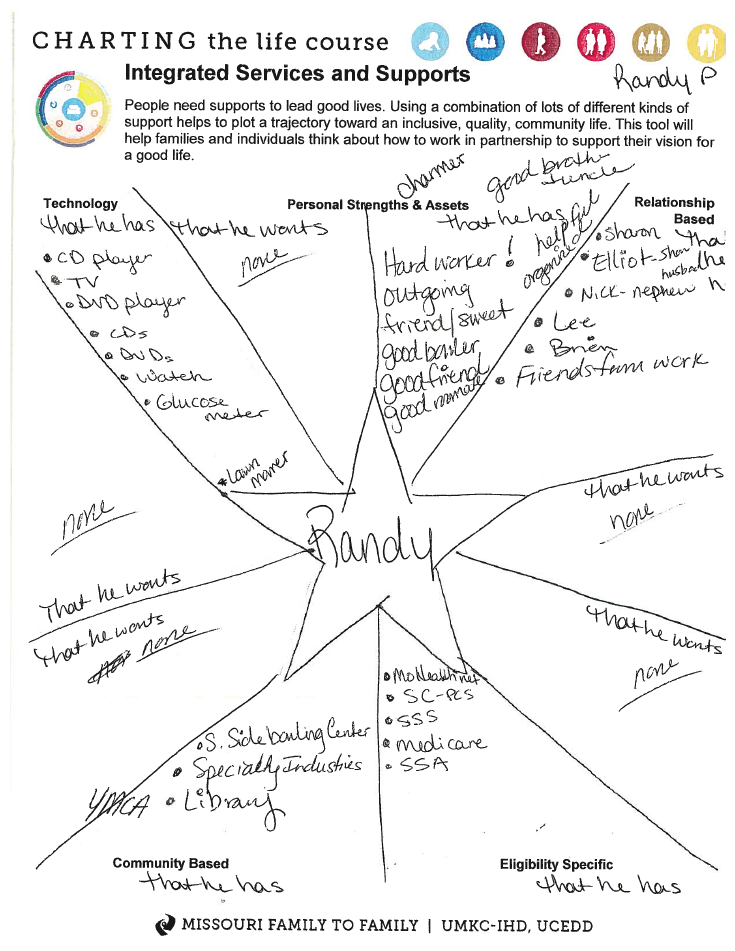 CHARTING the life course
Integrated Services and Supports
Randy P
People need supports to lead good lives. Using a combination of lots of different kinds of
support helps to plot a trajectory toward an inclusive, quality, community life. This tool will
help families and individuals think about how to work in partnership to support their vision for
a good life.
charmer
good broth
+ uncle
Technology
that he has
• CD player
• TV
• DVD player
• CDs
• DVDs
• Watch
• Glucose
meter
• Lawn
mower
that he wants
none
Personal Strengths & Assets
that he has
helpful
organized
Hard worker !
outgoing
friend/sweet
good bowler
good friend
good roomate
Relationship
Based
tha
he
h
• Sharon
• Elliot - shar
husband
• Nick - nephew
• Lee
• Brien
• Friends from work
none
That he wants
that he wants
none
that he wants
none
Randy
That he wants
none
• S. Side bowling Center
• Specialty Industries
• Library
YMCA
• MoHealthnet
• SC-PCS
• SSS
• medicare
• SSA
Community Based
that he has
Eligibility Specific
that he has
MISSOURI FAMILY TO FAMILY | UMKC-IHD, UCEDD